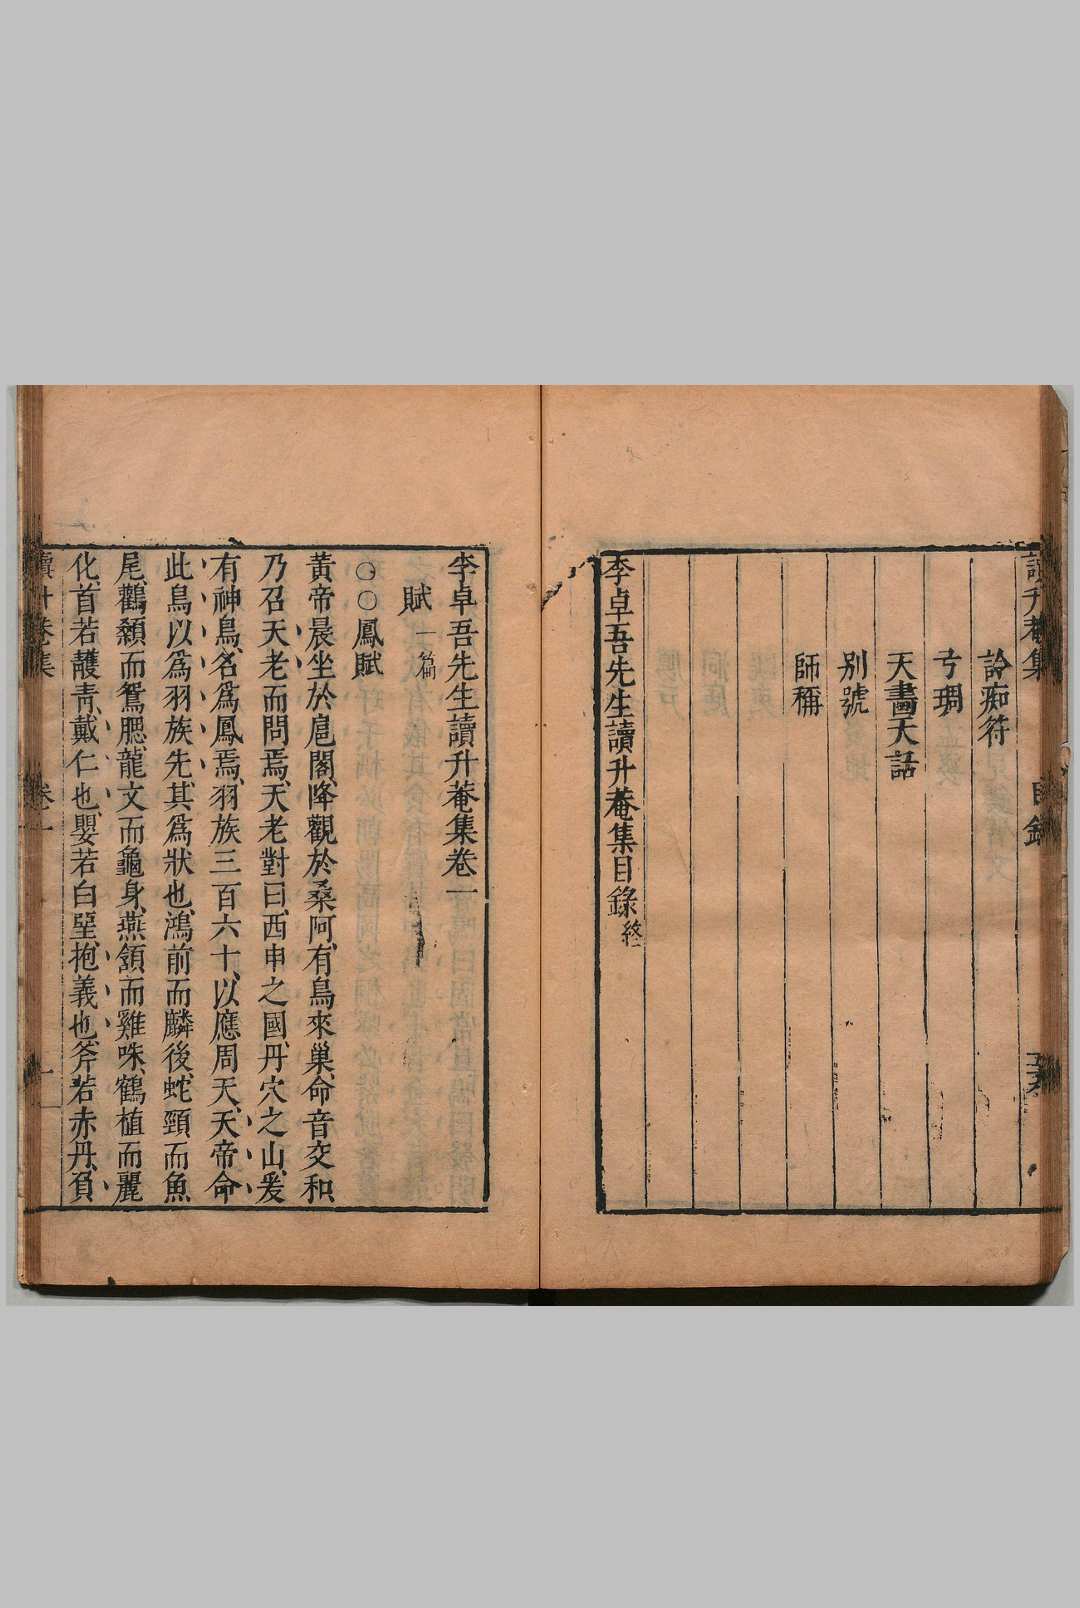 讀升菴集 目錄
詅痴符
弓琱
天畵天話
别號
師稱
李卓吾先生讀升菴集目錄終
李卓吾先生讀升菴集卷一
賦一篇
○○鳳賦
黃帝晨坐於扈閣、降觀於桑阿、有鳥來巢、命音交和、
乃召天老而問焉、天老對曰、西申之國、丹穴之山、爰
有神鳥、名爲鳳焉、羽族三百六十、以應周天、天帝命
此鳥以爲羽族先、其爲狀也、鴻前而麟後、蛇頸而魚
尾、鸛顙而鴛腮、龍文而龜身、燕頷而雞咮、鶴植而麗
化、首若頀靑、戴仁也、嬰若白堊、抱義也、斧若赤丹、負
讀升菴集 卷一 一